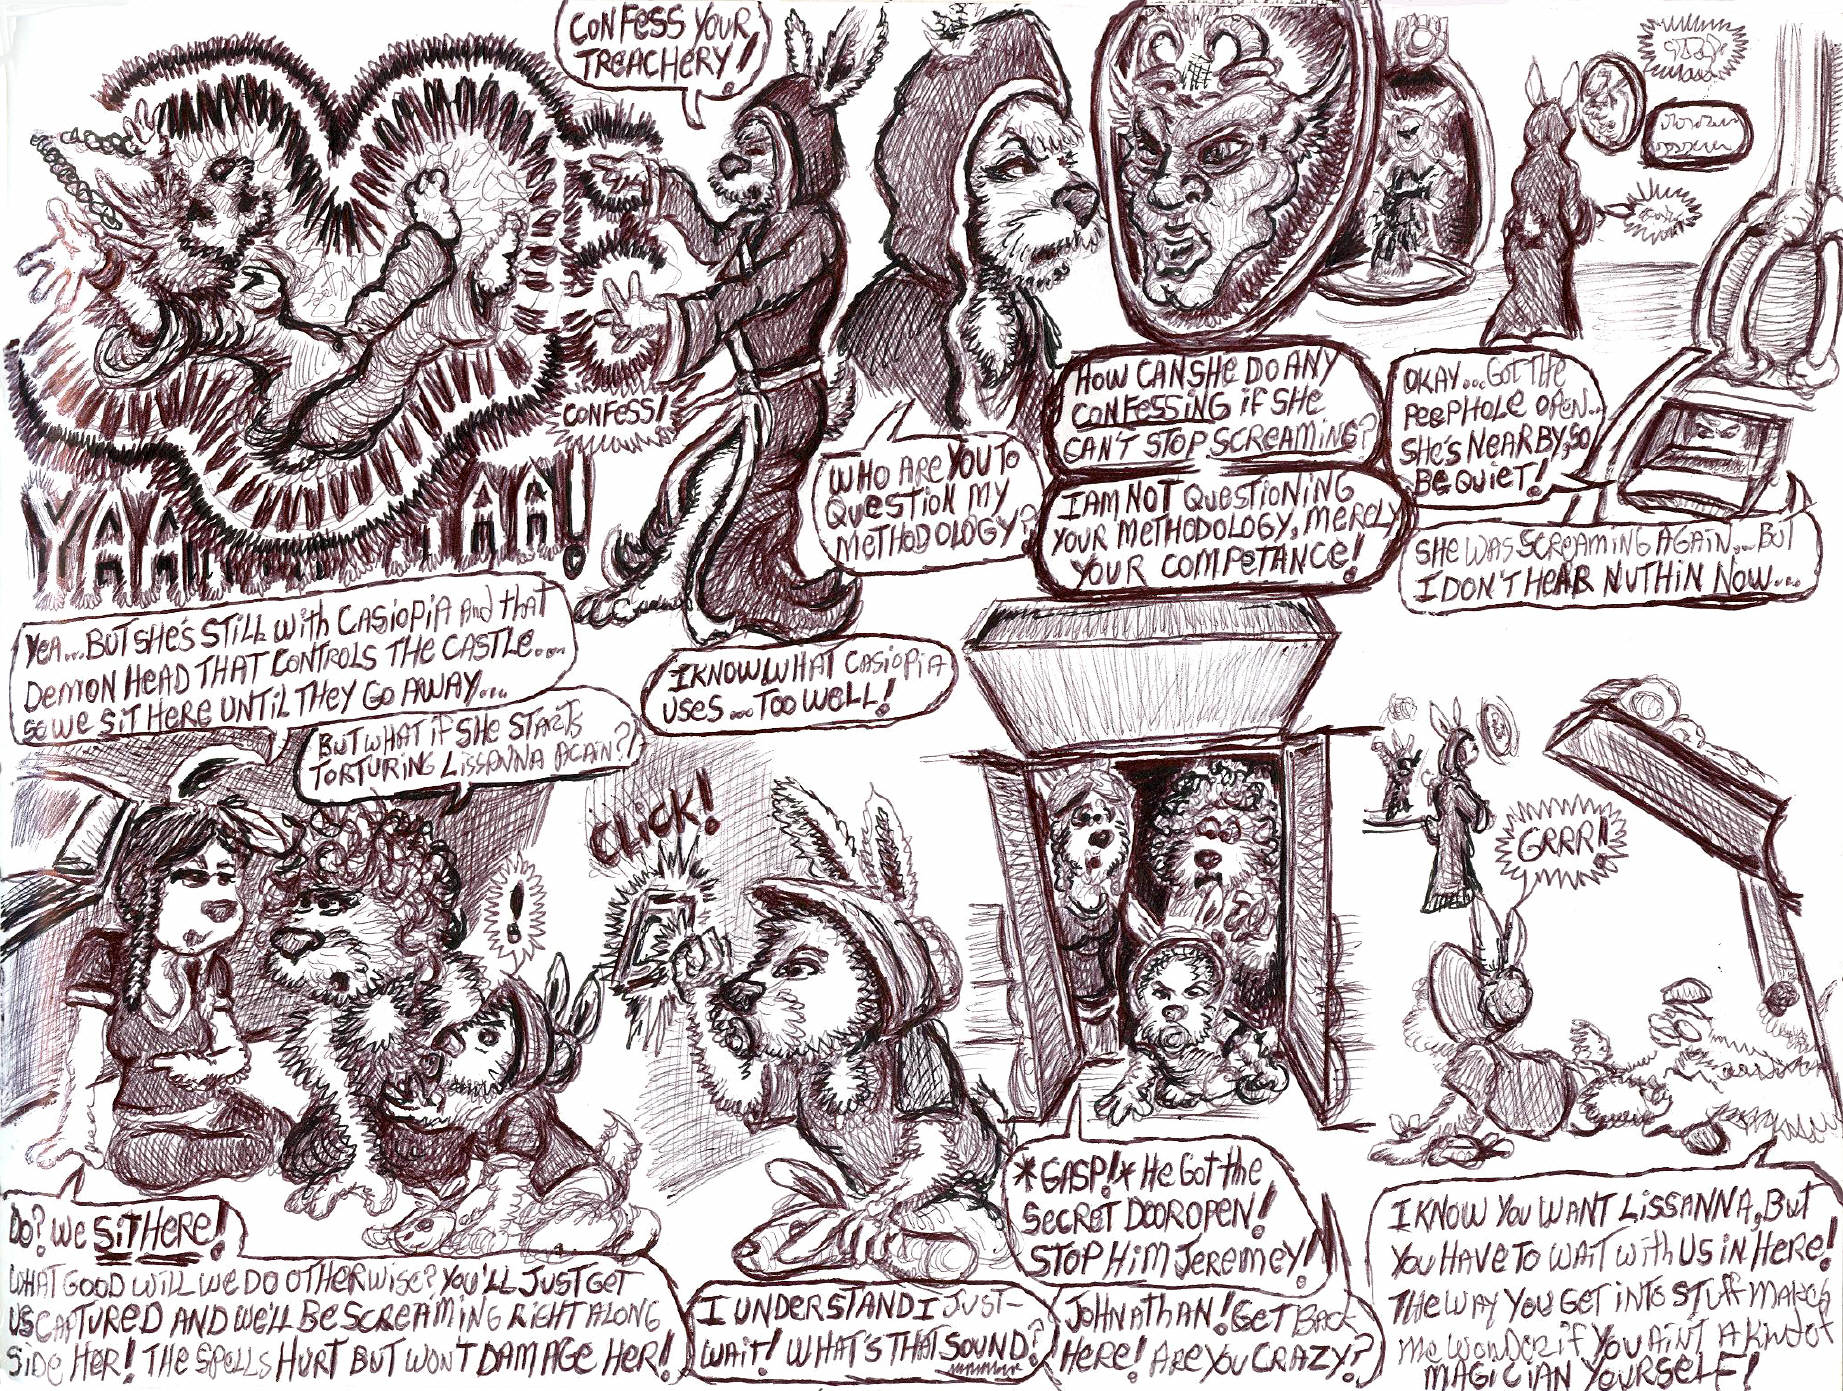 CONFESS YOUR
TREACHERY!
CONFESS!
YAA AA!
WHO ARE YOU TO
QUESTION MY
METHODOLOGY?
HOW CAN SHE DO ANY
CONFESSING IF SHE
CAN'T STOP SCREAMING?
I AM NOT QUESTIONING
YOUR METHODOLOGY, MERELY
YOUR COMPETANCE!
OKAY... GOT THE
PEEPHOLE OPEN..
SHE'S NEARBY, SO
BE QUIET!
SHE WAS SCREAMING AGAIN... BUT
I DON'T HEAR NUTHIN NOW....
YEA... BUT SHE'S STILL WITH CASIOPIA AND THAT
DEMON HEAD THAT CONTROLS THE CASTLE....
SO WE SIT HERE UNTIL THEY GO AWAY....
BUT WHAT IF SHE STARTS
TORTURING LISSANNA AGAIN?
I KNOW WHAT CASIOPIA
USES... TOO WELL!
!
CLICK!
DO? WE SIT HERE!
WHAT GOOD WILL WE DO OTHERWISE? YOU'LL JUST GET
US CAPTURED AND WE'LL BE SCREAMING RIGHT ALONG
SIDE HER! THE SPELLS HURT BUT WON'T DAMAGE HER!
I UNDERSTAND I JUST-
WAIT! WHAT'S THAT SOUND?
*GASP!* HE GOT THE
SECRET DOOR OPEN!
STOP HIM JEREMEY!
JOHNATHAN! GET BACK
HERE! ARE YOU CRAZY?
GRRR!
I KNOW YOU WANT LISSANNA, BUT
YOU HAVE TO WAIT WITH US IN HERE!
THE WAY YOU GET INTO STUFF MAKES
ME WONDER IF YOU AIN'T A KIND OF
MAGICIAN YOURSELF!